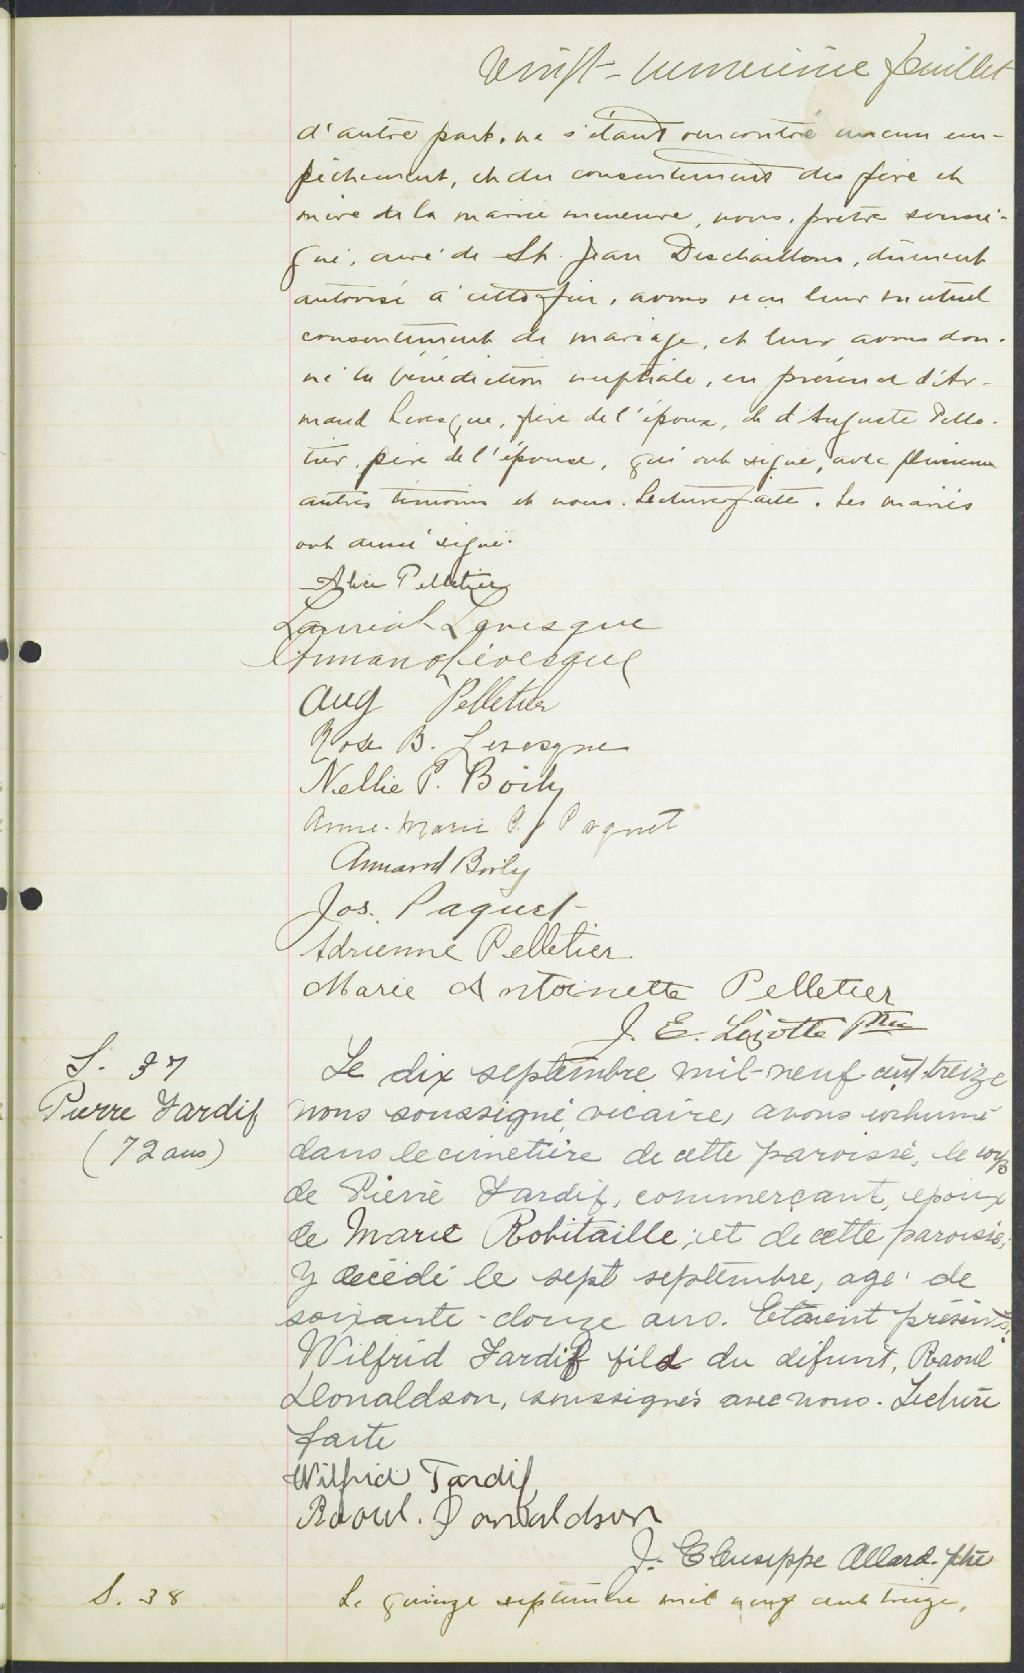 vingt-neuvième feuillet
d'autre part, ne s'étant rencontré aucun em-
pêchement, et du consentement des père et
mère de la mariée mineure, nous, prêtre soussi-
gné, curé de St. Jean Deschaillons, dûment
autorisé à cette fin, avons reçu leur mutuel
consentement de mariage, et leur avons don-
né la bénédiction nuptiale, en présence d'Ar-
mand Levesque, père de l'époux, et d'Auguste Pelle-
tier, père de l'épouse, qui ont signé, avec plusieurs
autres témoins et nous. Lecture faite. Les mariés
ont aussi signé.
Alice Pelletier
Lauriat Levesque
Armand Lévesque
Aug Pelletier
Rose B. Levesque
Nellie P. Boily
Anne-Marie P. Paquet
Armand Boily
Jos. Paquet
Adrienne Pelletier
Marie Antoinette Pelletier
J. E. Lizotte Ptre
S. 37
Pierre Tardif
(72 ans)
Le dix septembre mil-neuf-cent-treize
nous soussigné, vicaire, avons inhumé
dans le cimetière de cette paroisse, le corps
de Pierre Tardif, commerçant, époux
de Marie Robitaille; et de cette paroisse;
y décédé le sept septembre, agé de
soixante-douze ans. Etaient présents:
Wilfrid Tardif fils du défunt, Raoul
Donaldson, soussignés avec nous. Lecture
faite
Wilfrid Tardif
Raoul. Donaldson
J. Giuseppe Allard. ptre
S. 38
Le quinze septembre mil neuf cent treize,